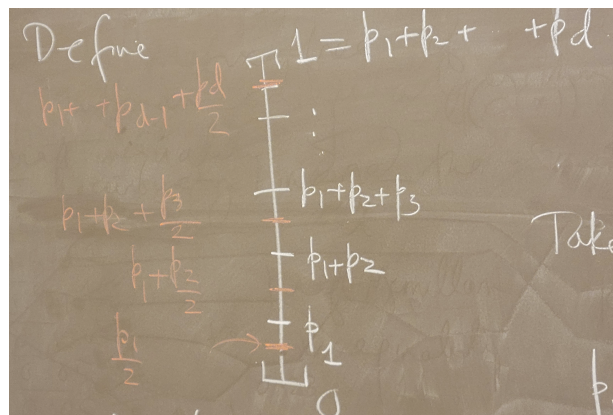 Define 1 = p₁+p₂+ ··· +p_d
p₁+··+p_{d-1}+p_d/2
⋮
p₁+p₂+p₃
p₁+p₂+p₃/2
Take
p₁+p₂
p₁+p₂/2
p₁
p₁/2 →
p
0